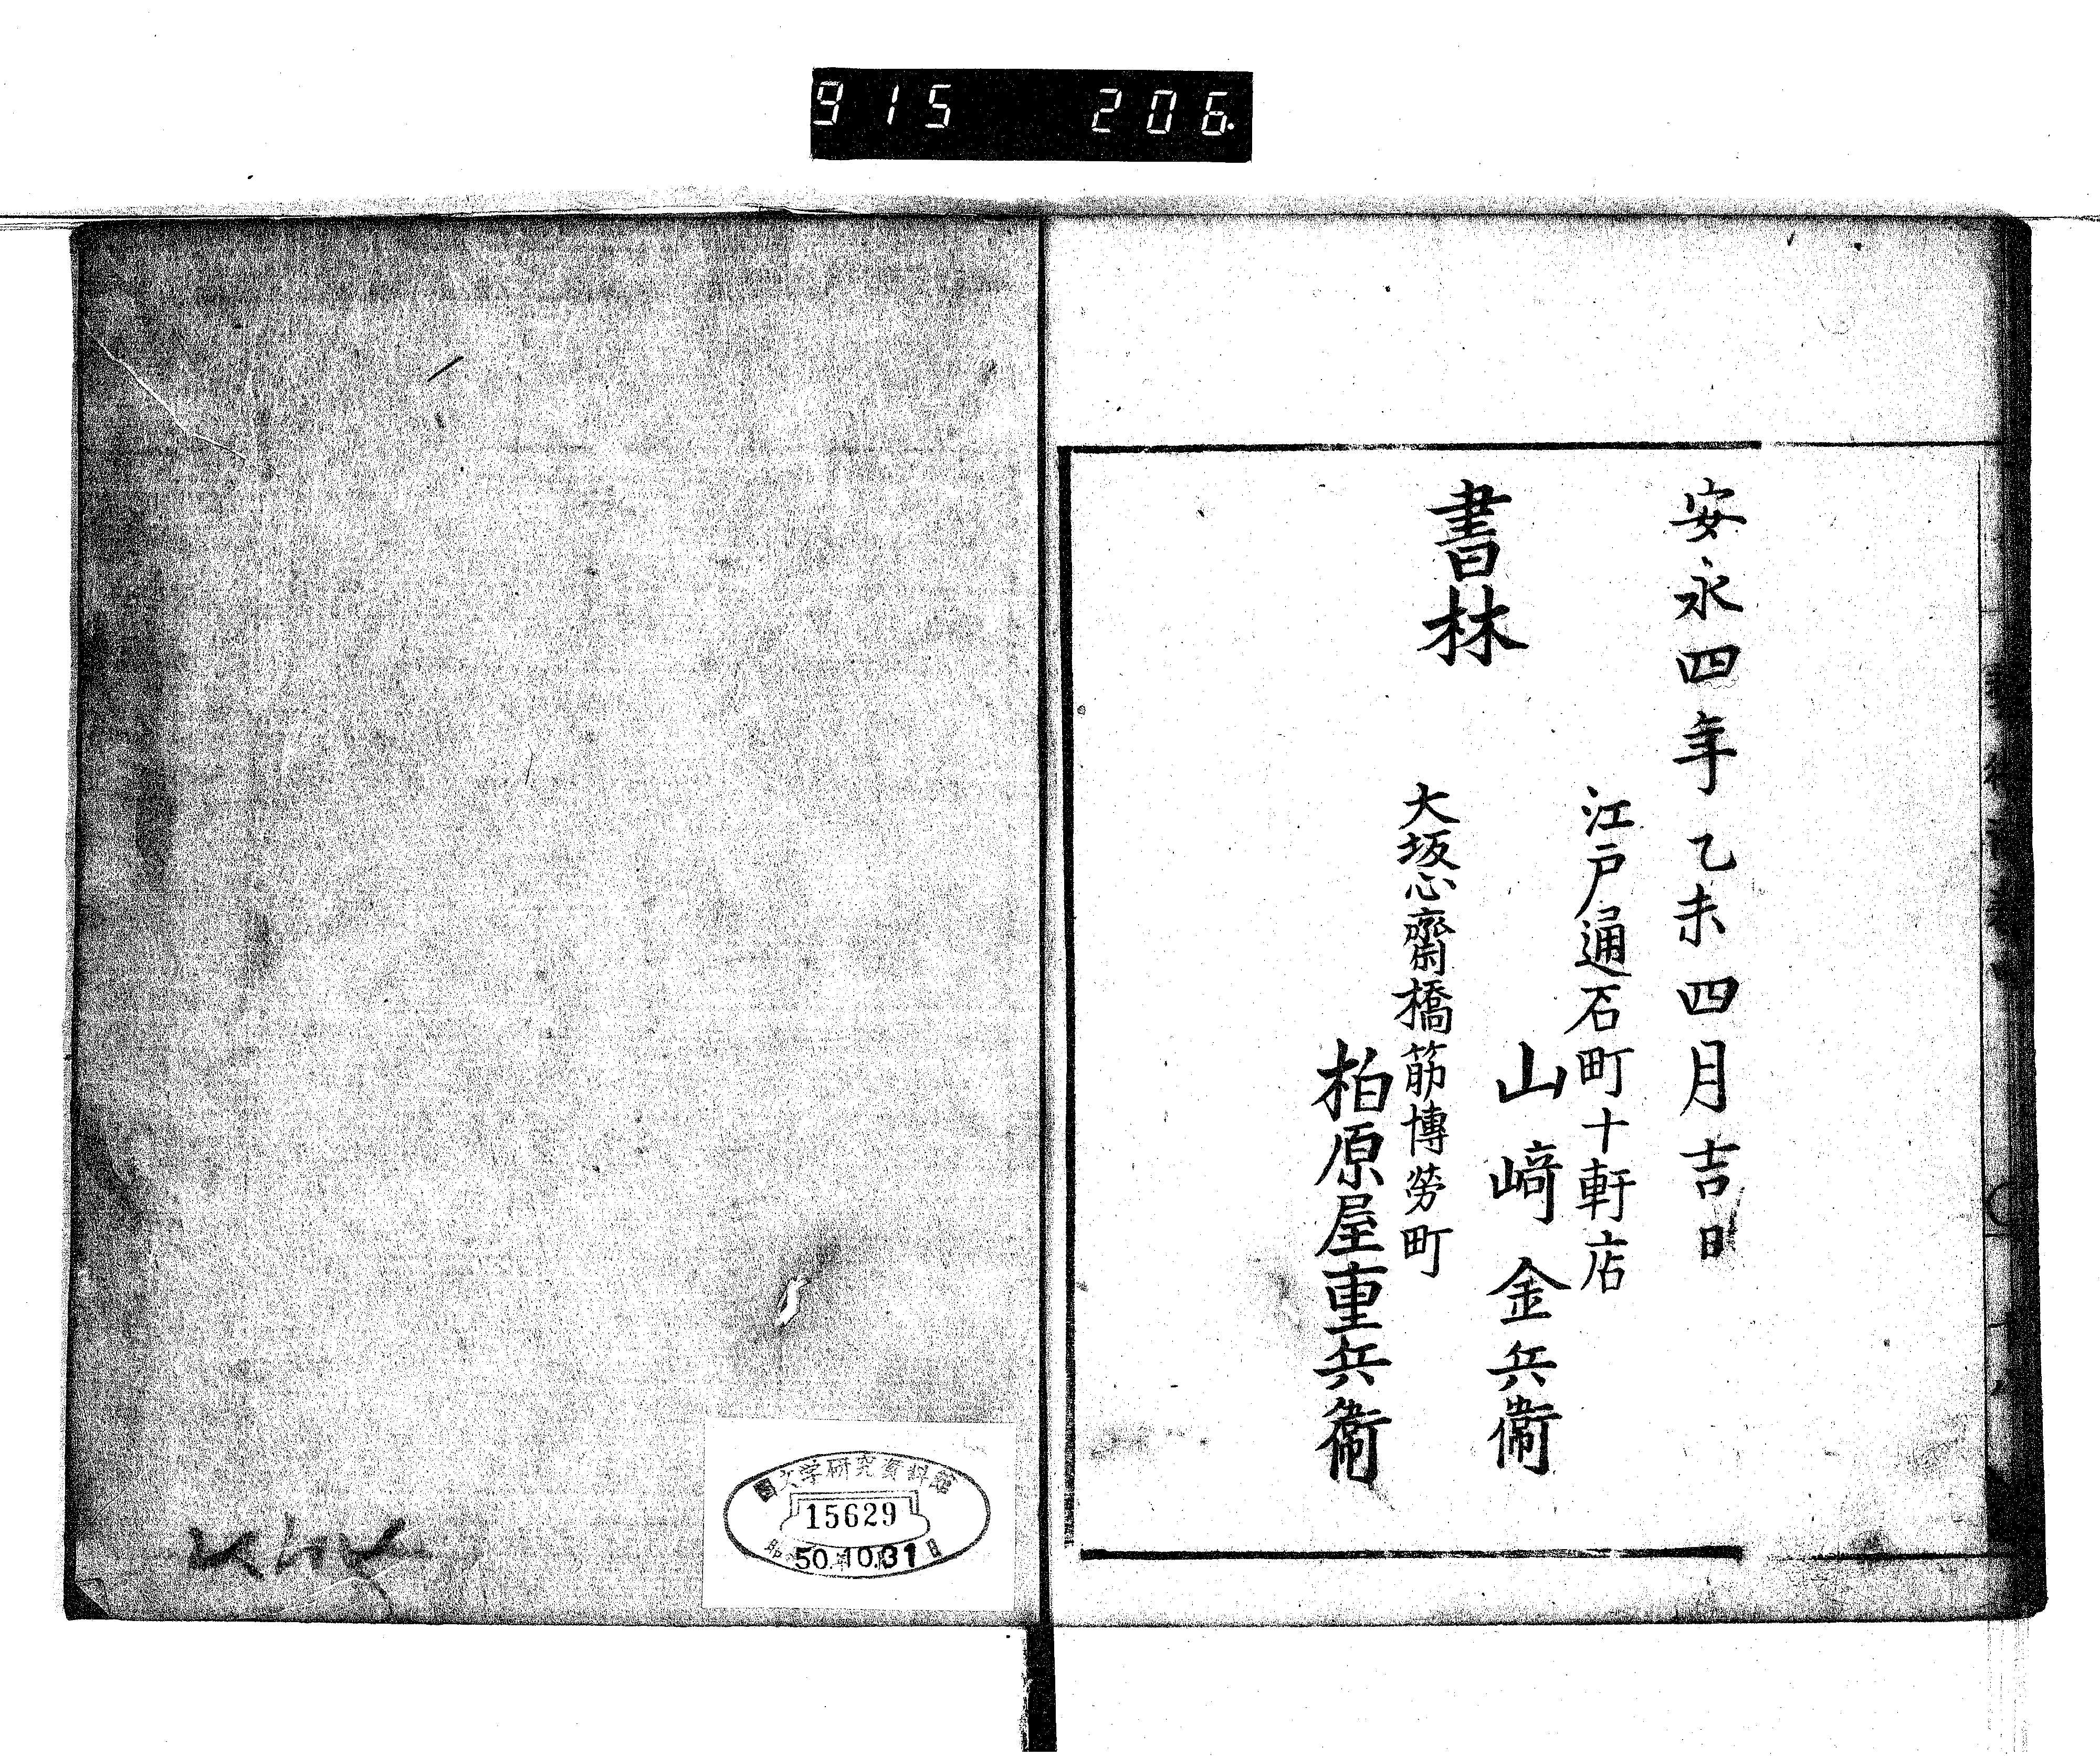 915 206.
安永四年乙未四月吉日
江戸通石町十軒店
山﨑金兵衞
書林
大坂心齋橋筋博勞町
柏原屋重兵衞
國文学研究資料館
15629
50.10.31